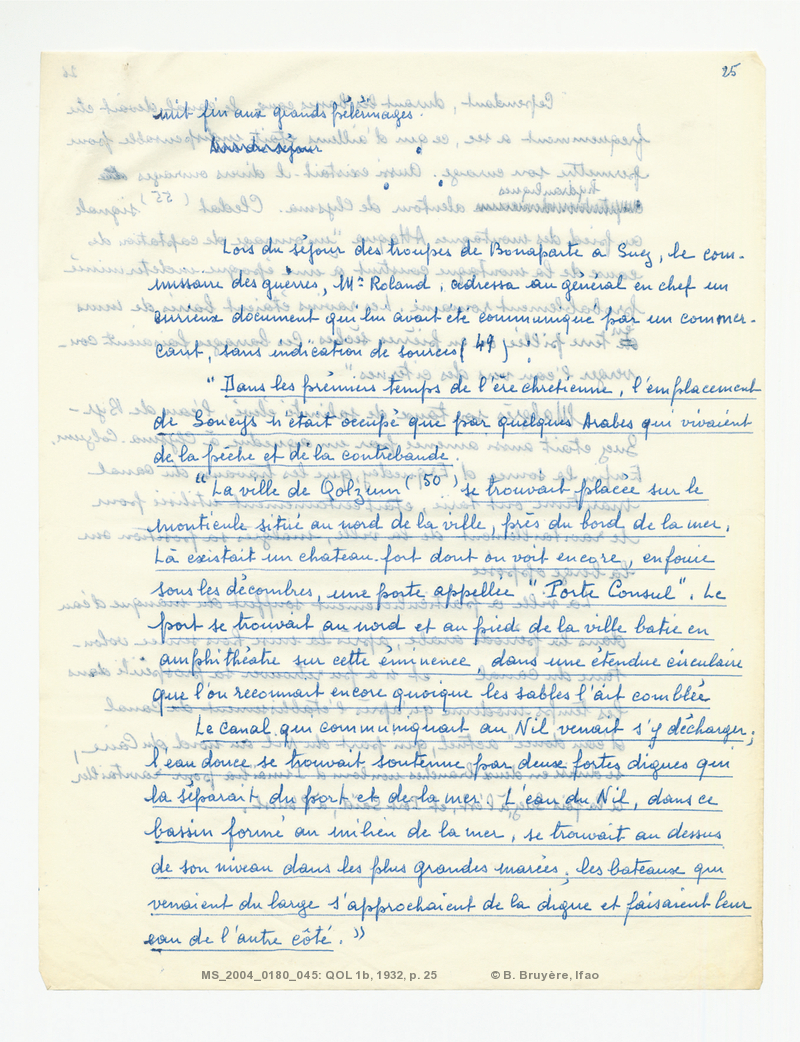 25
mit fin aux grands pélérinages.
Lors du séjour
Lors du séjour des troupes de Bonaparte a Suez, le com-
missaire des guerres, Mr Roland, adressa au général en chef un
curieux document qui lui avait été communiqué par un commer-
cant, sans indication de sources (49)
"Dans les prémiers temps de l'ère chretienne, l'emplacement
de Soueys n'était occupé que par quelques Arabes qui vivaient
de la pêche et de la contrebande.
"La ville de Qolzum (50) se trouvait placée sur le
monticule situé au nord de la ville, près du bord de la mer.
Là existait un chateau-fort dont on voit encore, enfouie
sous les décombres, une porte appellée "Porte Consul". Le
port se trouvait au nord et au pied de la ville batie en
amphithéatre sur cette éminence, dans une étendue circulaire
que l'on reconnait encore quoique les sables l'ait comblée
Le canal qui communiquait au Nil venait s'y décharger;
l'eau douce se trouvait soutenue par deux fortes digues qui
la séparait du port et de la mer. L'eau du Nil, dans ce
bassin formé au milieu de la mer, se trouvait au dessus
de son niveau dans les plus grandes marées; les bateaux qui
venaient du large s'approchaient de la digue et faisaient leur
eau de l'autre côté."
MS_2004_0180_045: QOL 1b, 1932, p. 25 © B. Bruyère, Ifao